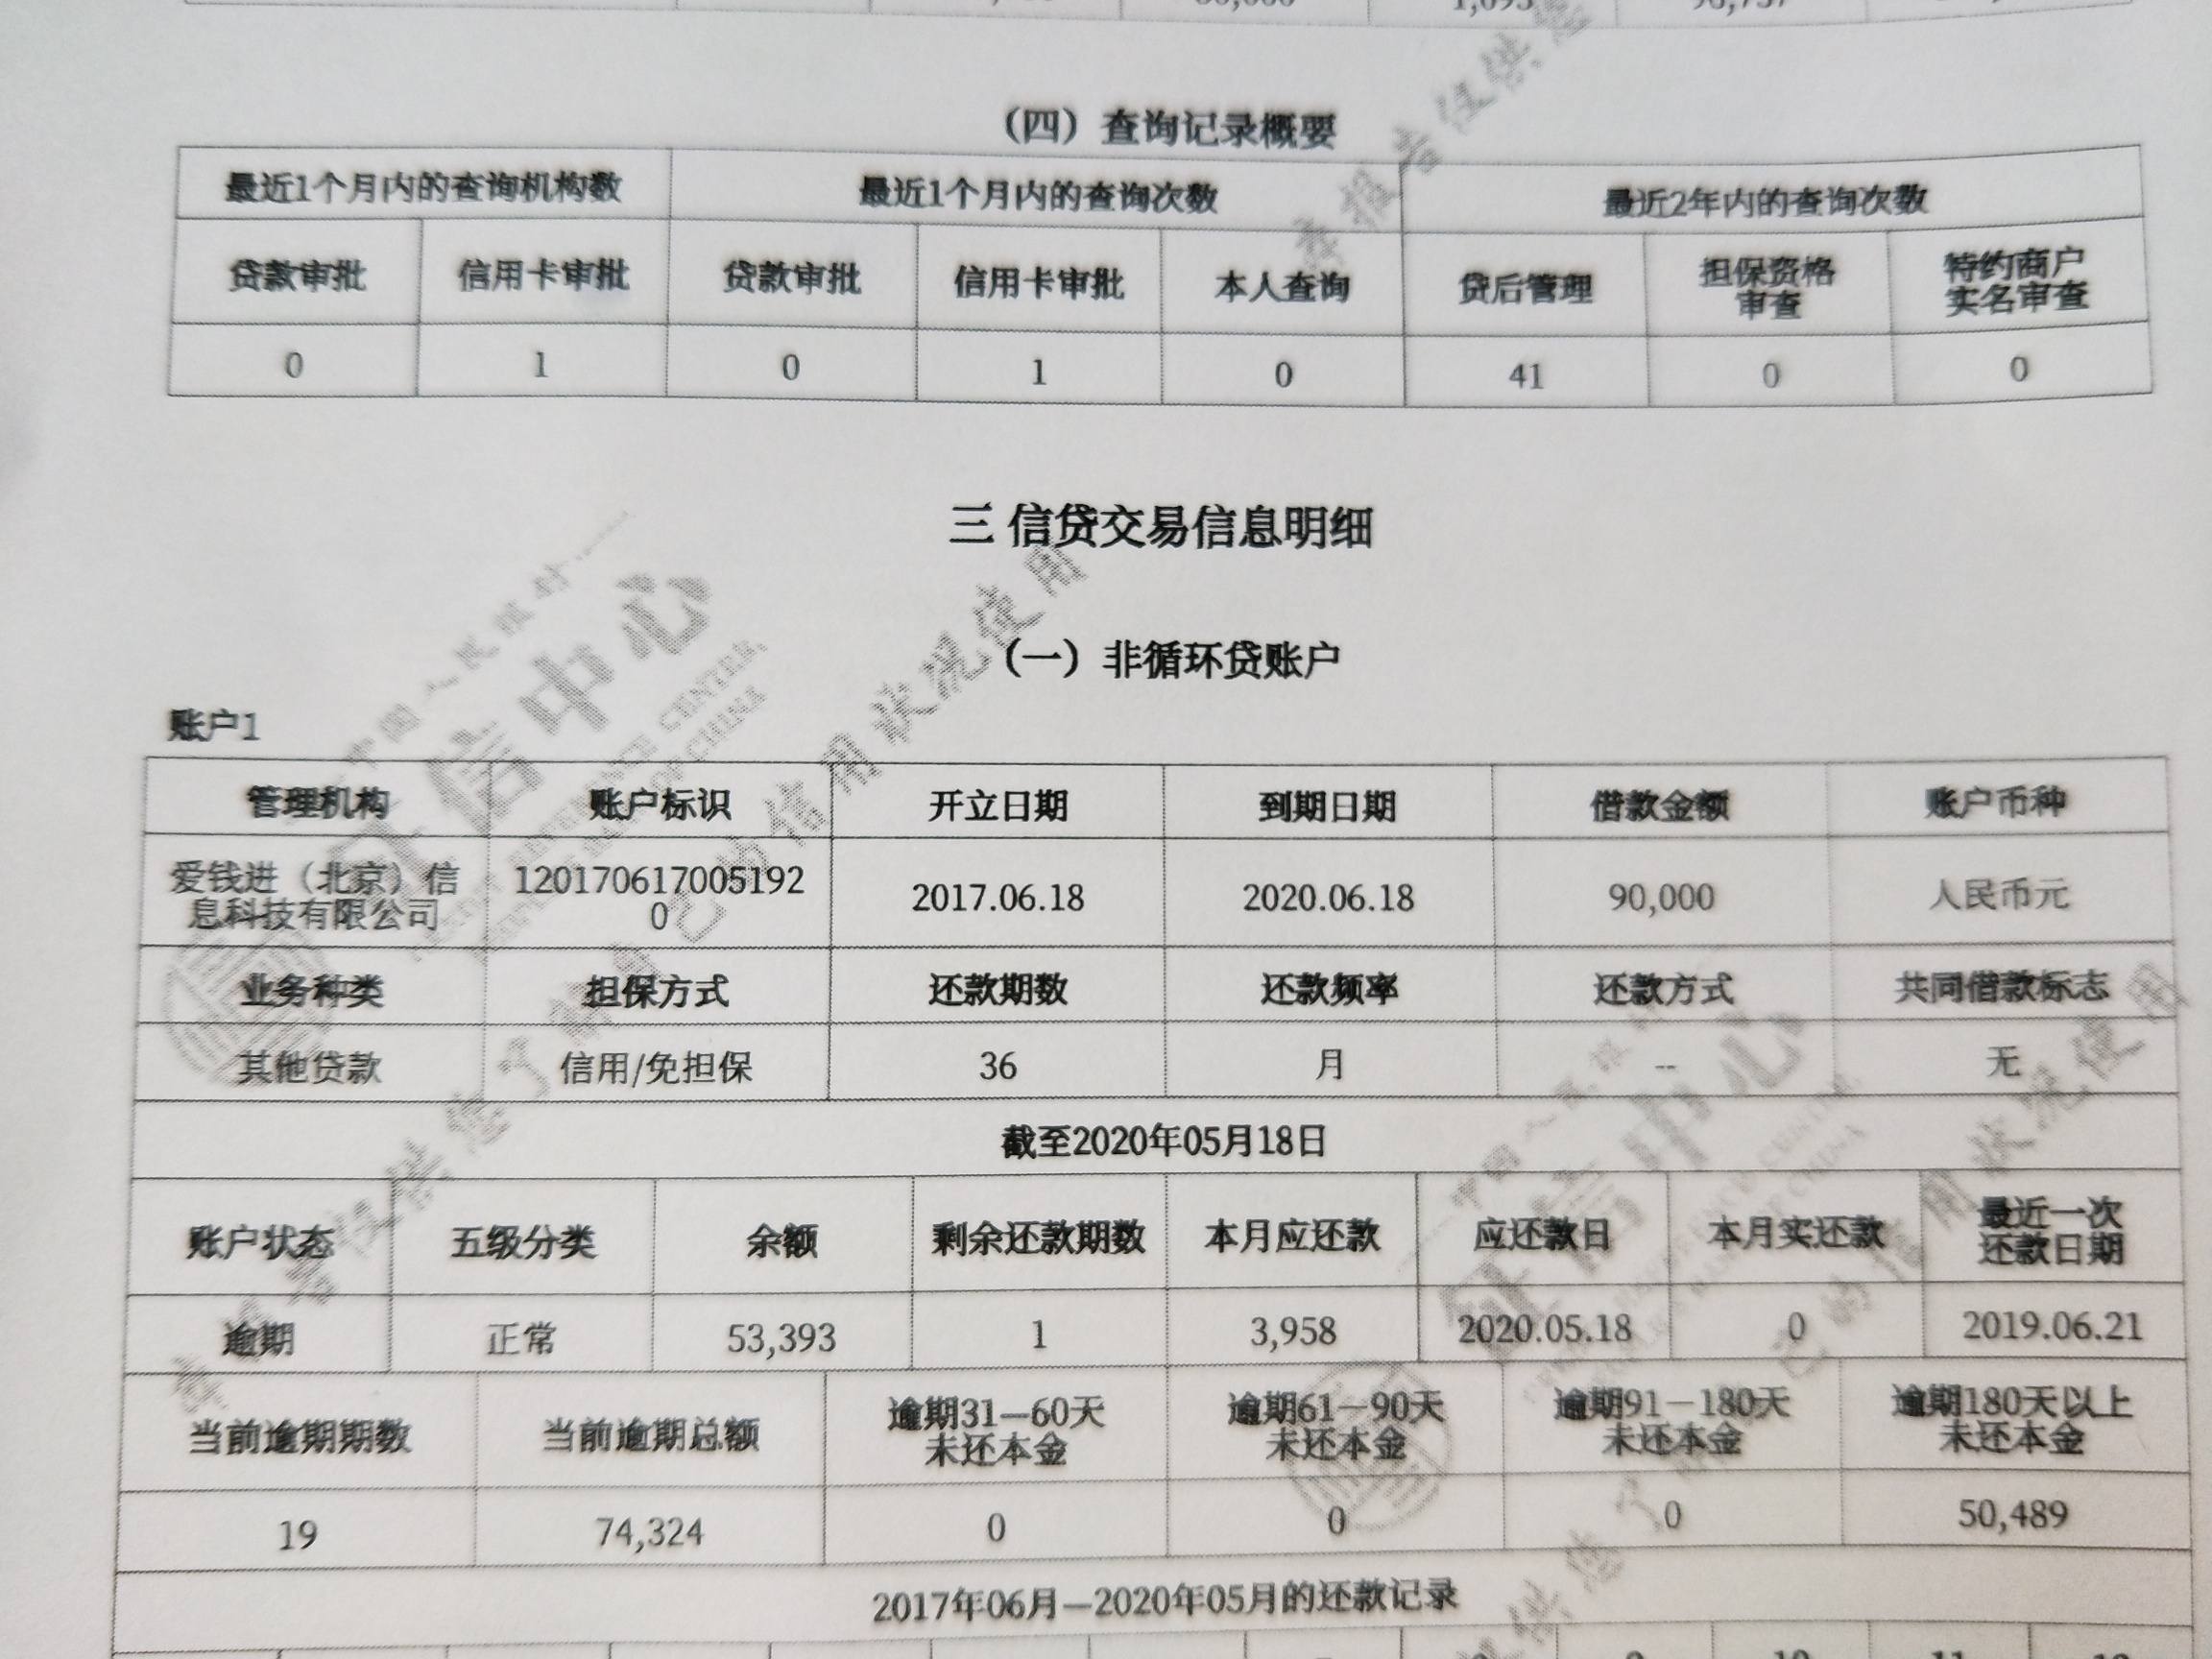 （四）查询记录概要
最近1个月内的查询机构数 最近1个月内的查询次数 最近2年内的查询次数
贷款审批 信用卡审批 贷款审批 信用卡审批 本人查询 贷后管理 担保资格审查 特约商户实名审查
0 1 0 1 0 41 0 0
三 信贷交易信息明细
（一）非循环贷账户
账户1
管理机构 账户标识 开立日期 到期日期 借款金额 账户币种
爱钱进（北京）信息科技有限公司 1201706170051920 2017.06.18 2020.06.18 90,000 人民币元
业务种类 担保方式 还款期数 还款频率 还款方式 共同借款标志
其他贷款 信用/免担保 36 月 -- 无
截至2020年05月18日
账户状态 五级分类 余额 剩余还款期数 本月应还款 应还款日 本月实还款 最近一次还款日期
逾期 正常 53,393 1 3,958 2020.05.18 0 2019.06.21
当前逾期期数 当前逾期总额 逾期31—60天未还本金 逾期61－90天未还本金 逾期91－180天未还本金 逾期180天以上未还本金
19 74,324 0 0 0 50,489
2017年06月—2020年05月的还款记录